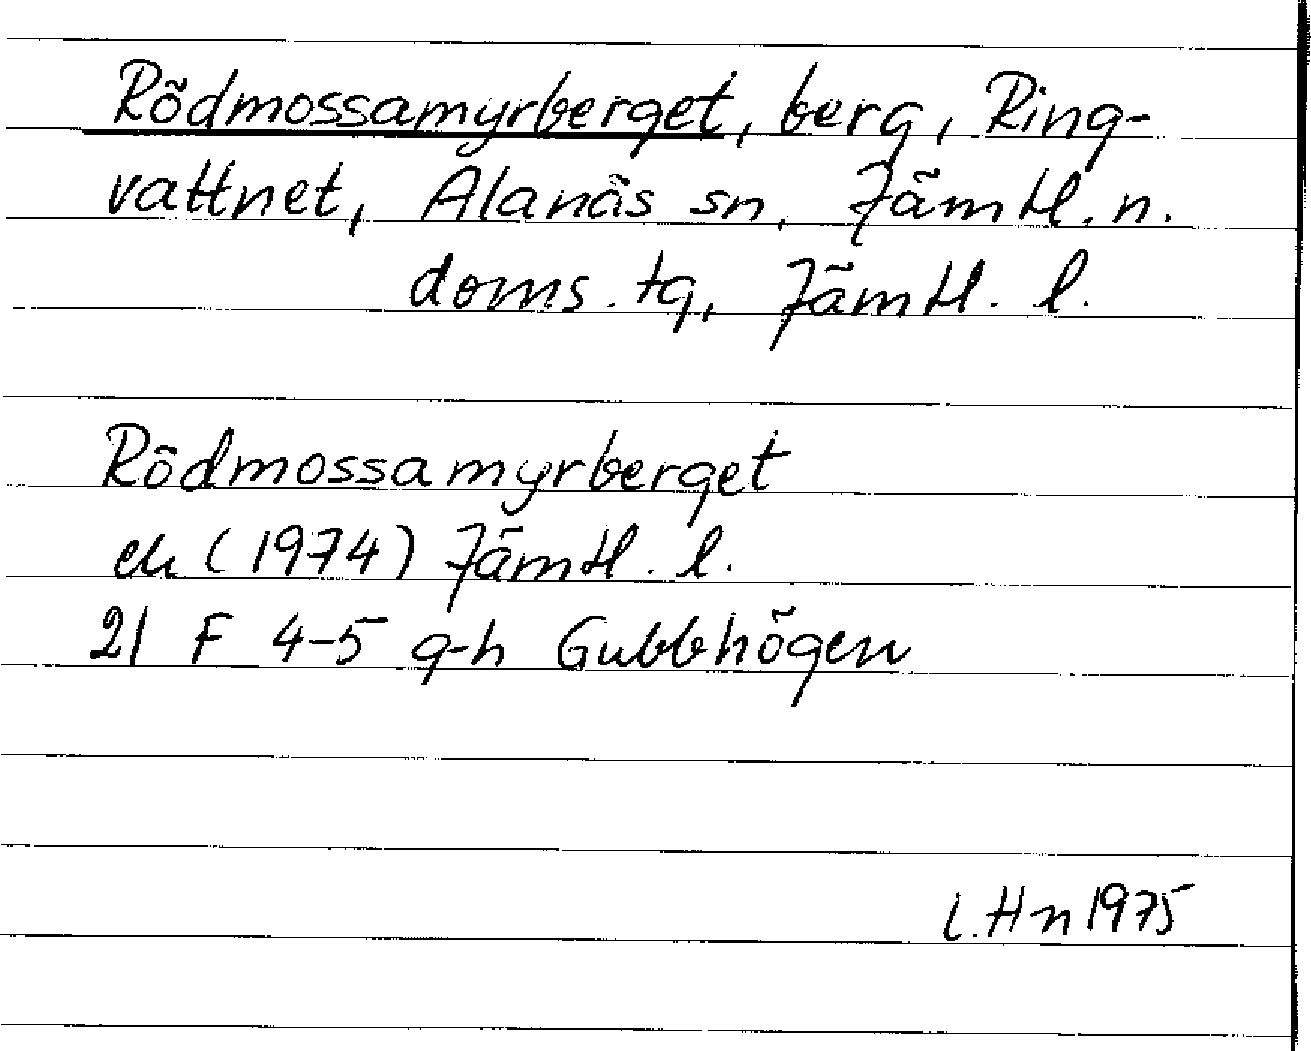 Rödmossamyrberget, berg, Ring-
vattnet, Alanäs sn, Jämtl. n.
doms. tg, Jämtl. l.
Rödmossamyrberget
ek (1974) Jämtl. l.
21 F 4-5 g-h Gubbhögen
L. Hn 1975